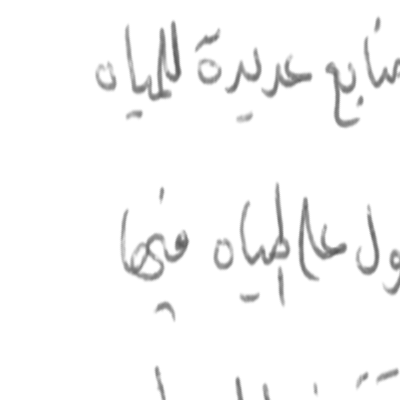 منابع عديدة للمياه
ول على المياه فيها